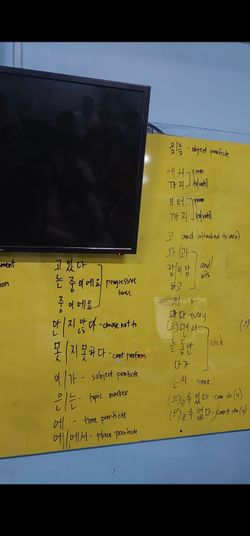 을/를 - object particle
에서 from
까지 to/until
부터 from
까지 to/until
고 and (attached to verb)
와/과
랑/이랑 and/
하고 with
의
마다 every
(으)면서
는 동안 while
다가
는지 - since
(으)ㄹ 수 있다 - can do (v)
(으)ㄹ 수 없다 - cannot do (v)
고 있다
는 중이에요 progressive
중이에요 tense
안/지 않다 - choose not to
못/지 못하다 - cant perform
이/가 - subject particle
은/는 - topic marker
에 - time particle
에/에서 - place particle